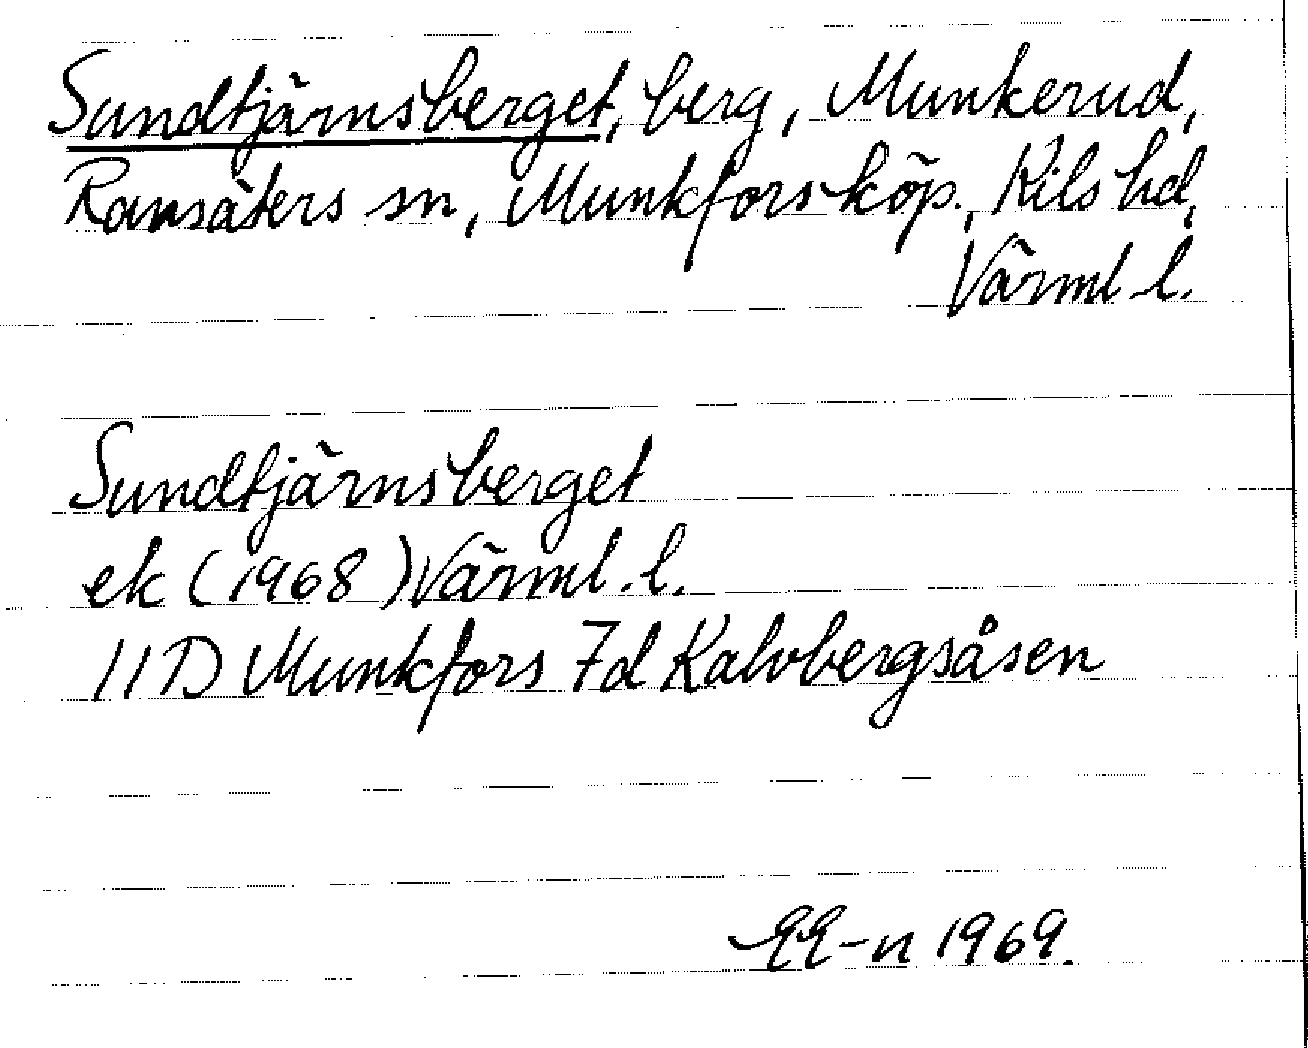 Sundtjärnsberget, berg, Munkerud,
Ransäters sn, Munkfors köp., Kils hd,
Värml. l.
Sundtjärnsberget
ek (1968) Värml. l.
11D Munkfors 7d Kalvbergsåsen
EE-n 1969.